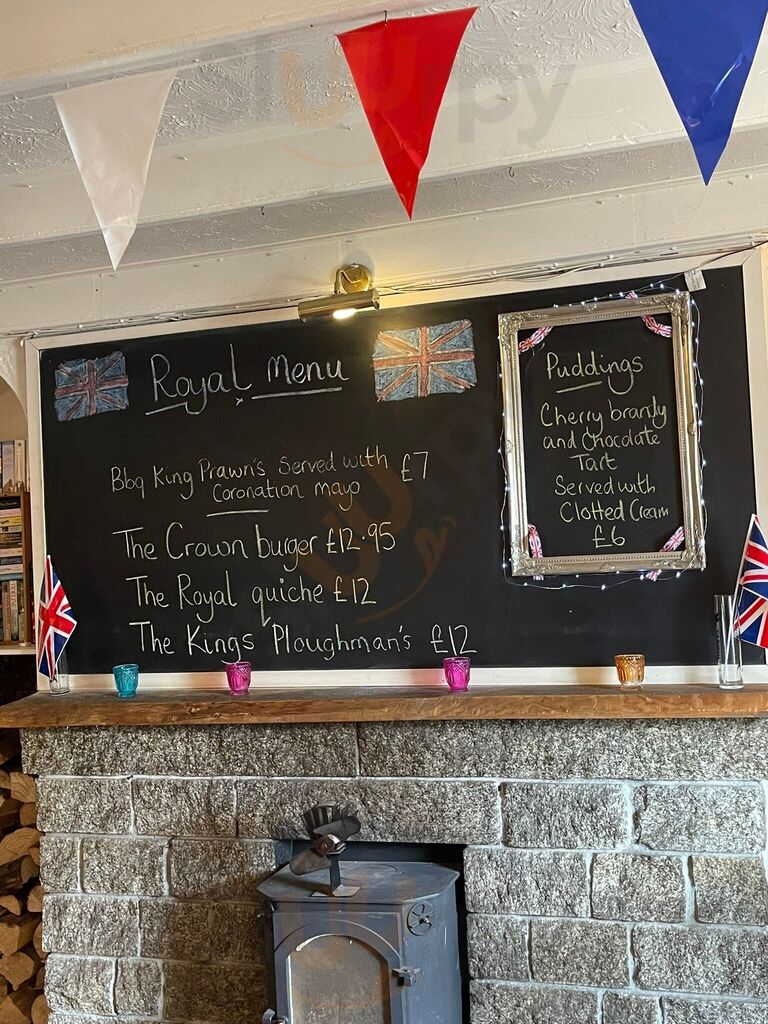 Royal Menu
Bbq King Prawn's Served with £7
Coronation mayo
The Crown burger £12.95
The Royal quiche £12
The Kings Ploughman's £12
Puddings
Cherry brandy
and Chocolate
Tart
Served with
Clotted Cream
£6